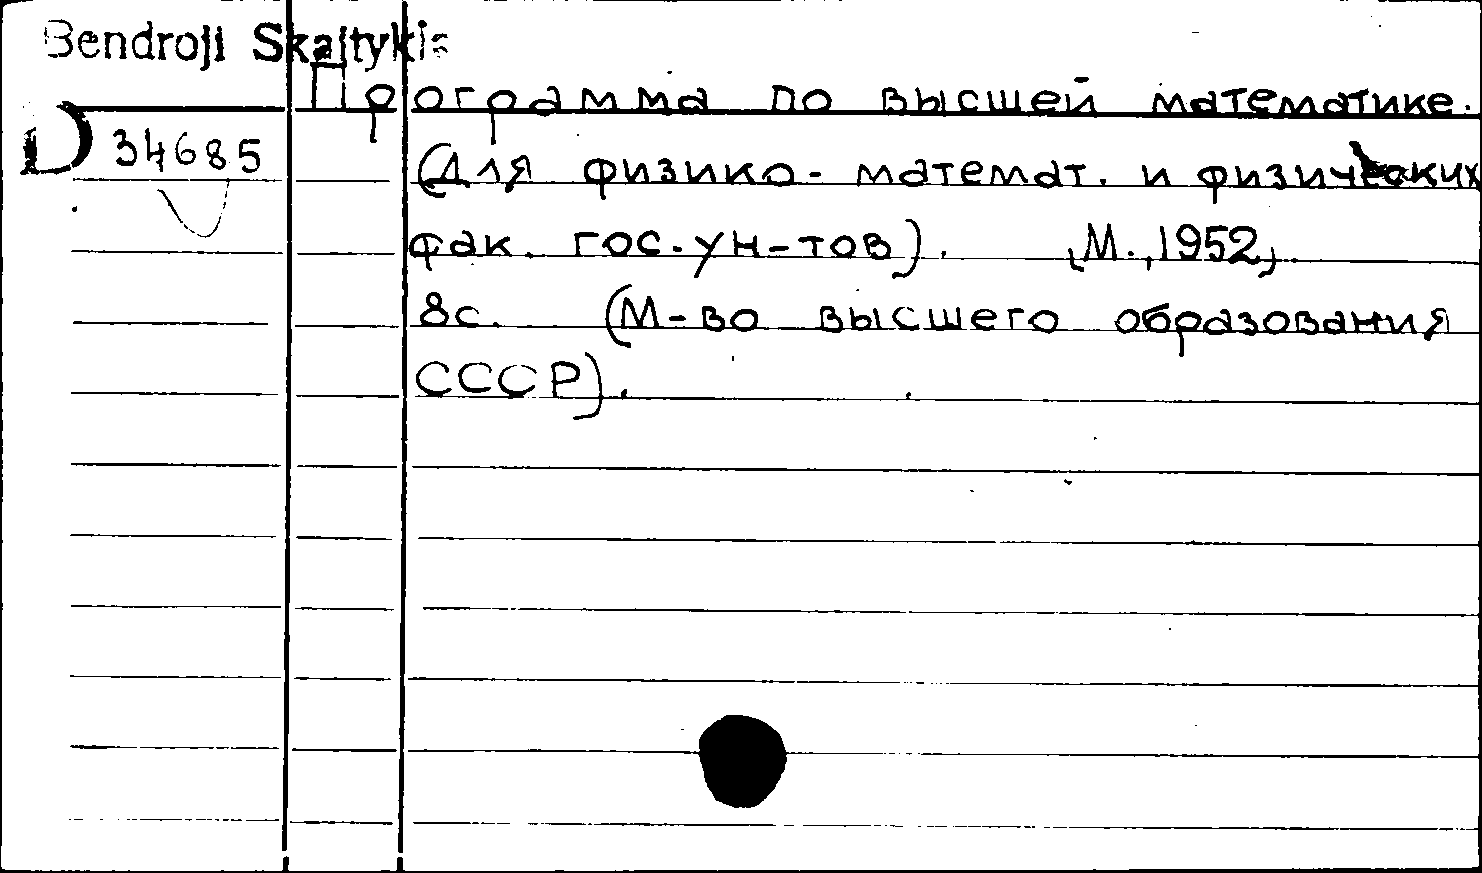 Bendroji Skaitykla
Программа по высшей математике.
D 34685
(Для физико-математ. и физических
фак. гос. ун-тов). [М., 1952].
8с. (М-во высшего образования
СССР).